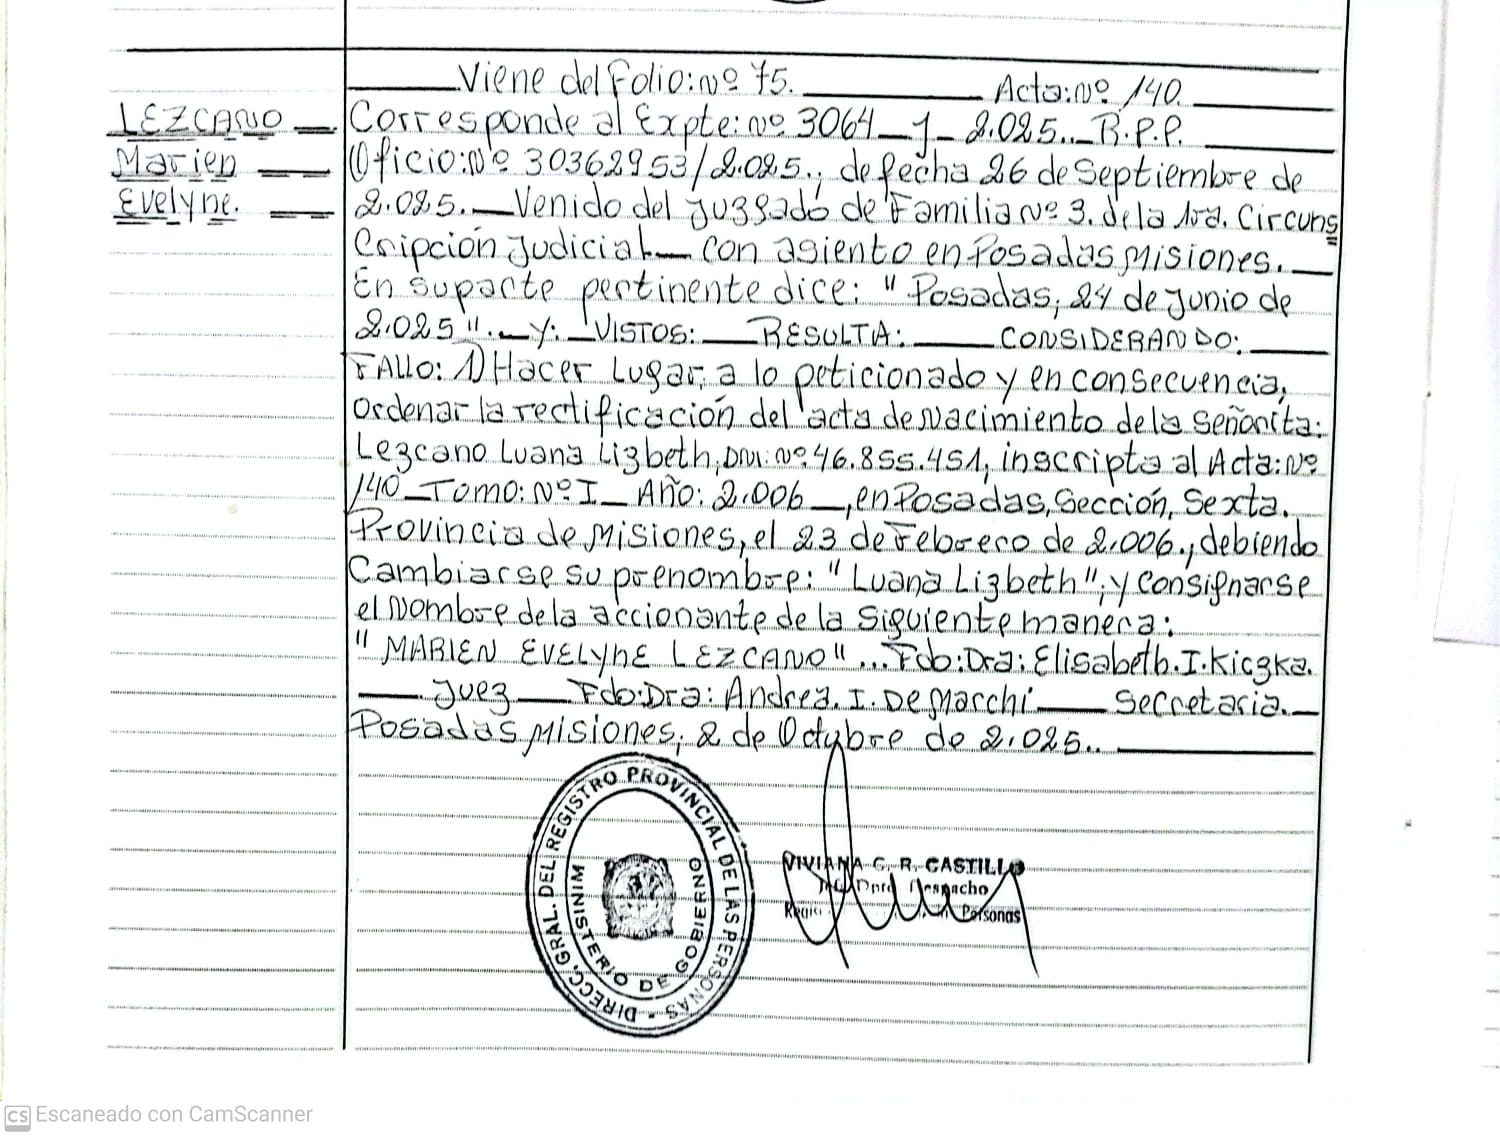 Viene del Folio: Nº 75. Acta: Nº 140.
LEZCANO Corresponde al Expte: Nº 3064 _ J _ 2.025.._ R.P.P.
Marien Oficio: Nº 30362953/2.025., de fecha 26 de Septiembre de
Evelyne. 2.025. _ Venido del Juzgado de Familia Nº 3. de la 1ra. Circuns
Cripción Judicial _ con asiento en Posadas Misiones. _
En su parte pertinente dice: " Posadas, 24 de Junio de
2.025". _ Y: _ VISTOS: _ RESULTA: _ CONSIDERANDO: _
FALLO: 1) Hacer Lugar, a lo peticionado y en consecuencia,
Ordenar la rectificación del acta de Nacimiento de la Señorita:
Lezcano Luana Lizbeth, DNI: Nº 46.855.451, inscripta al Acta: Nº
140 _ Tomo: Nº I _ Año: 2.006 _, en Posadas, Sección, Sexta.
Provincia de Misiones, el 23 de Febrero de 2.006., debiendo
Cambiarse su prenombre: " Luana Lizbeth"; y Consignarse
el Nombre de la accionante de la Siguiente manera:
" MARIEN EVELYNE LEZCANO"... Fdo: Dra: Elisabeth. I. Kiczka.
_ Juez _ Fdo: Dra: Andrea. I. De Marchi _ Secretaria. _
Posadas Misiones, 2 de Octubre de 2.025.. _
DIRECC. GRAL. DEL REGISTRO PROVINCIAL DE LAS PERSONAS -
MINISTERIO DE GOBIERNO
VIVIANA C. R. CASTILLO
Dpto Despacho
Personas
CS Escaneado con CamScanner